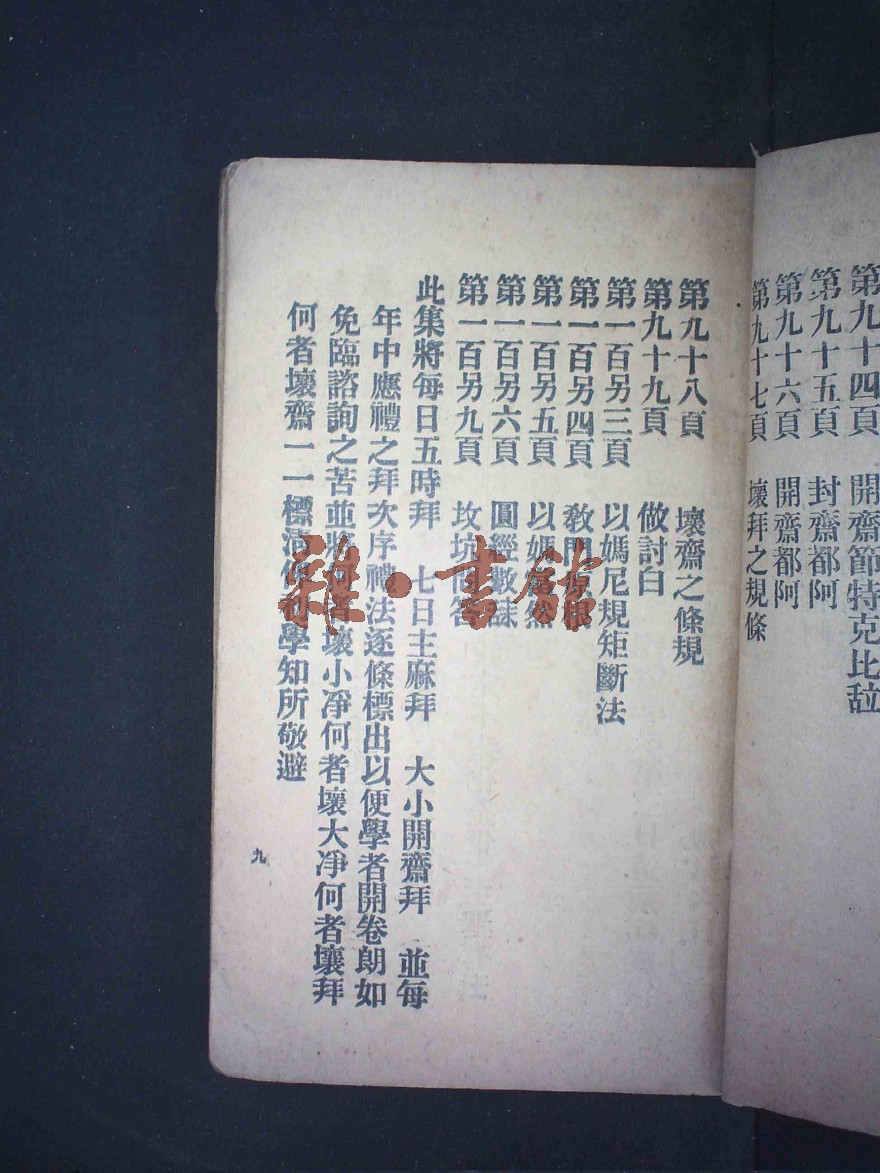 第九十四頁 開齋節特克比拉
第九十五頁 封齋都阿
第九十六頁 開齋都阿
第九十七頁 壞拜之規條
第九十八頁 壞齋之條規
第九十九頁 做討白
第一百另三頁 以媽尼規矩斷法
第一百另四頁 教門
第一百另五頁 以媽 然
第一百另六頁 圓經數誄
第一百另九頁 坟坑問答
此集將每日五時拜 七日主麻拜 大小開齋拜 並每
年中應禮之拜次序禮法逐條標出以便學者開卷朗如
免臨諮詢之苦並將何者壞小凈何者壞大凈何者壞拜
何者壞齋一一標清 初學知所敬避
九
雜·書館